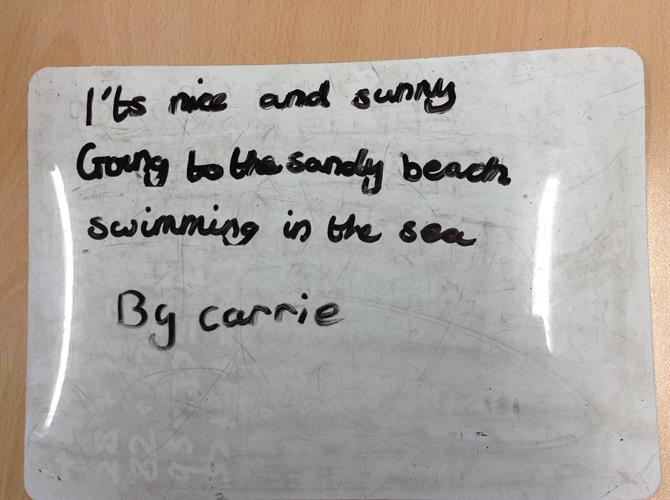 I'ts nice and sunny
Going to the sandy beach
swimming in the sea
By carrie